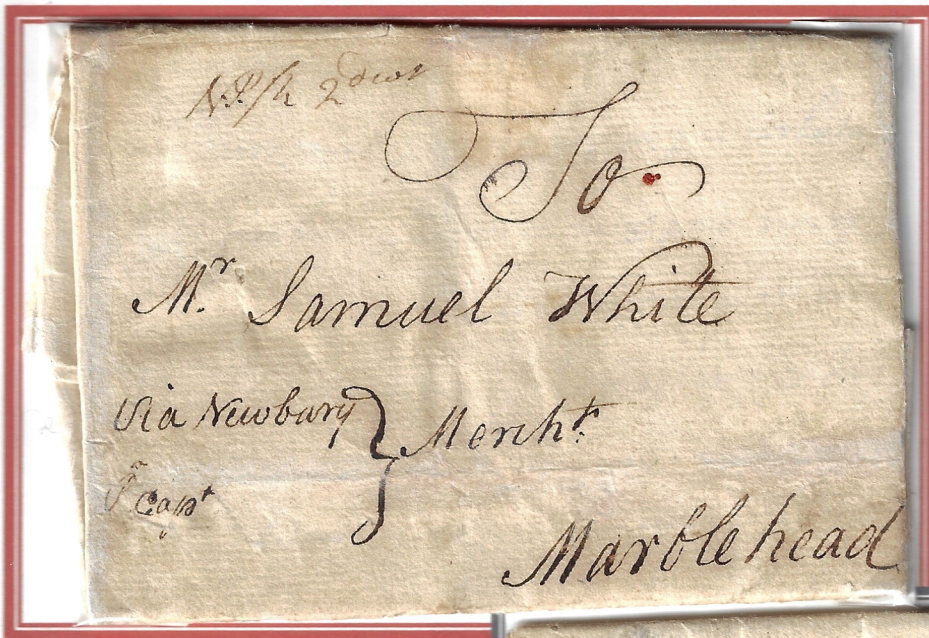 N.P/h 2dwt
To
Mr. Samuel White
Via Newbury } Mercht.
Pr Capt
Marblehead